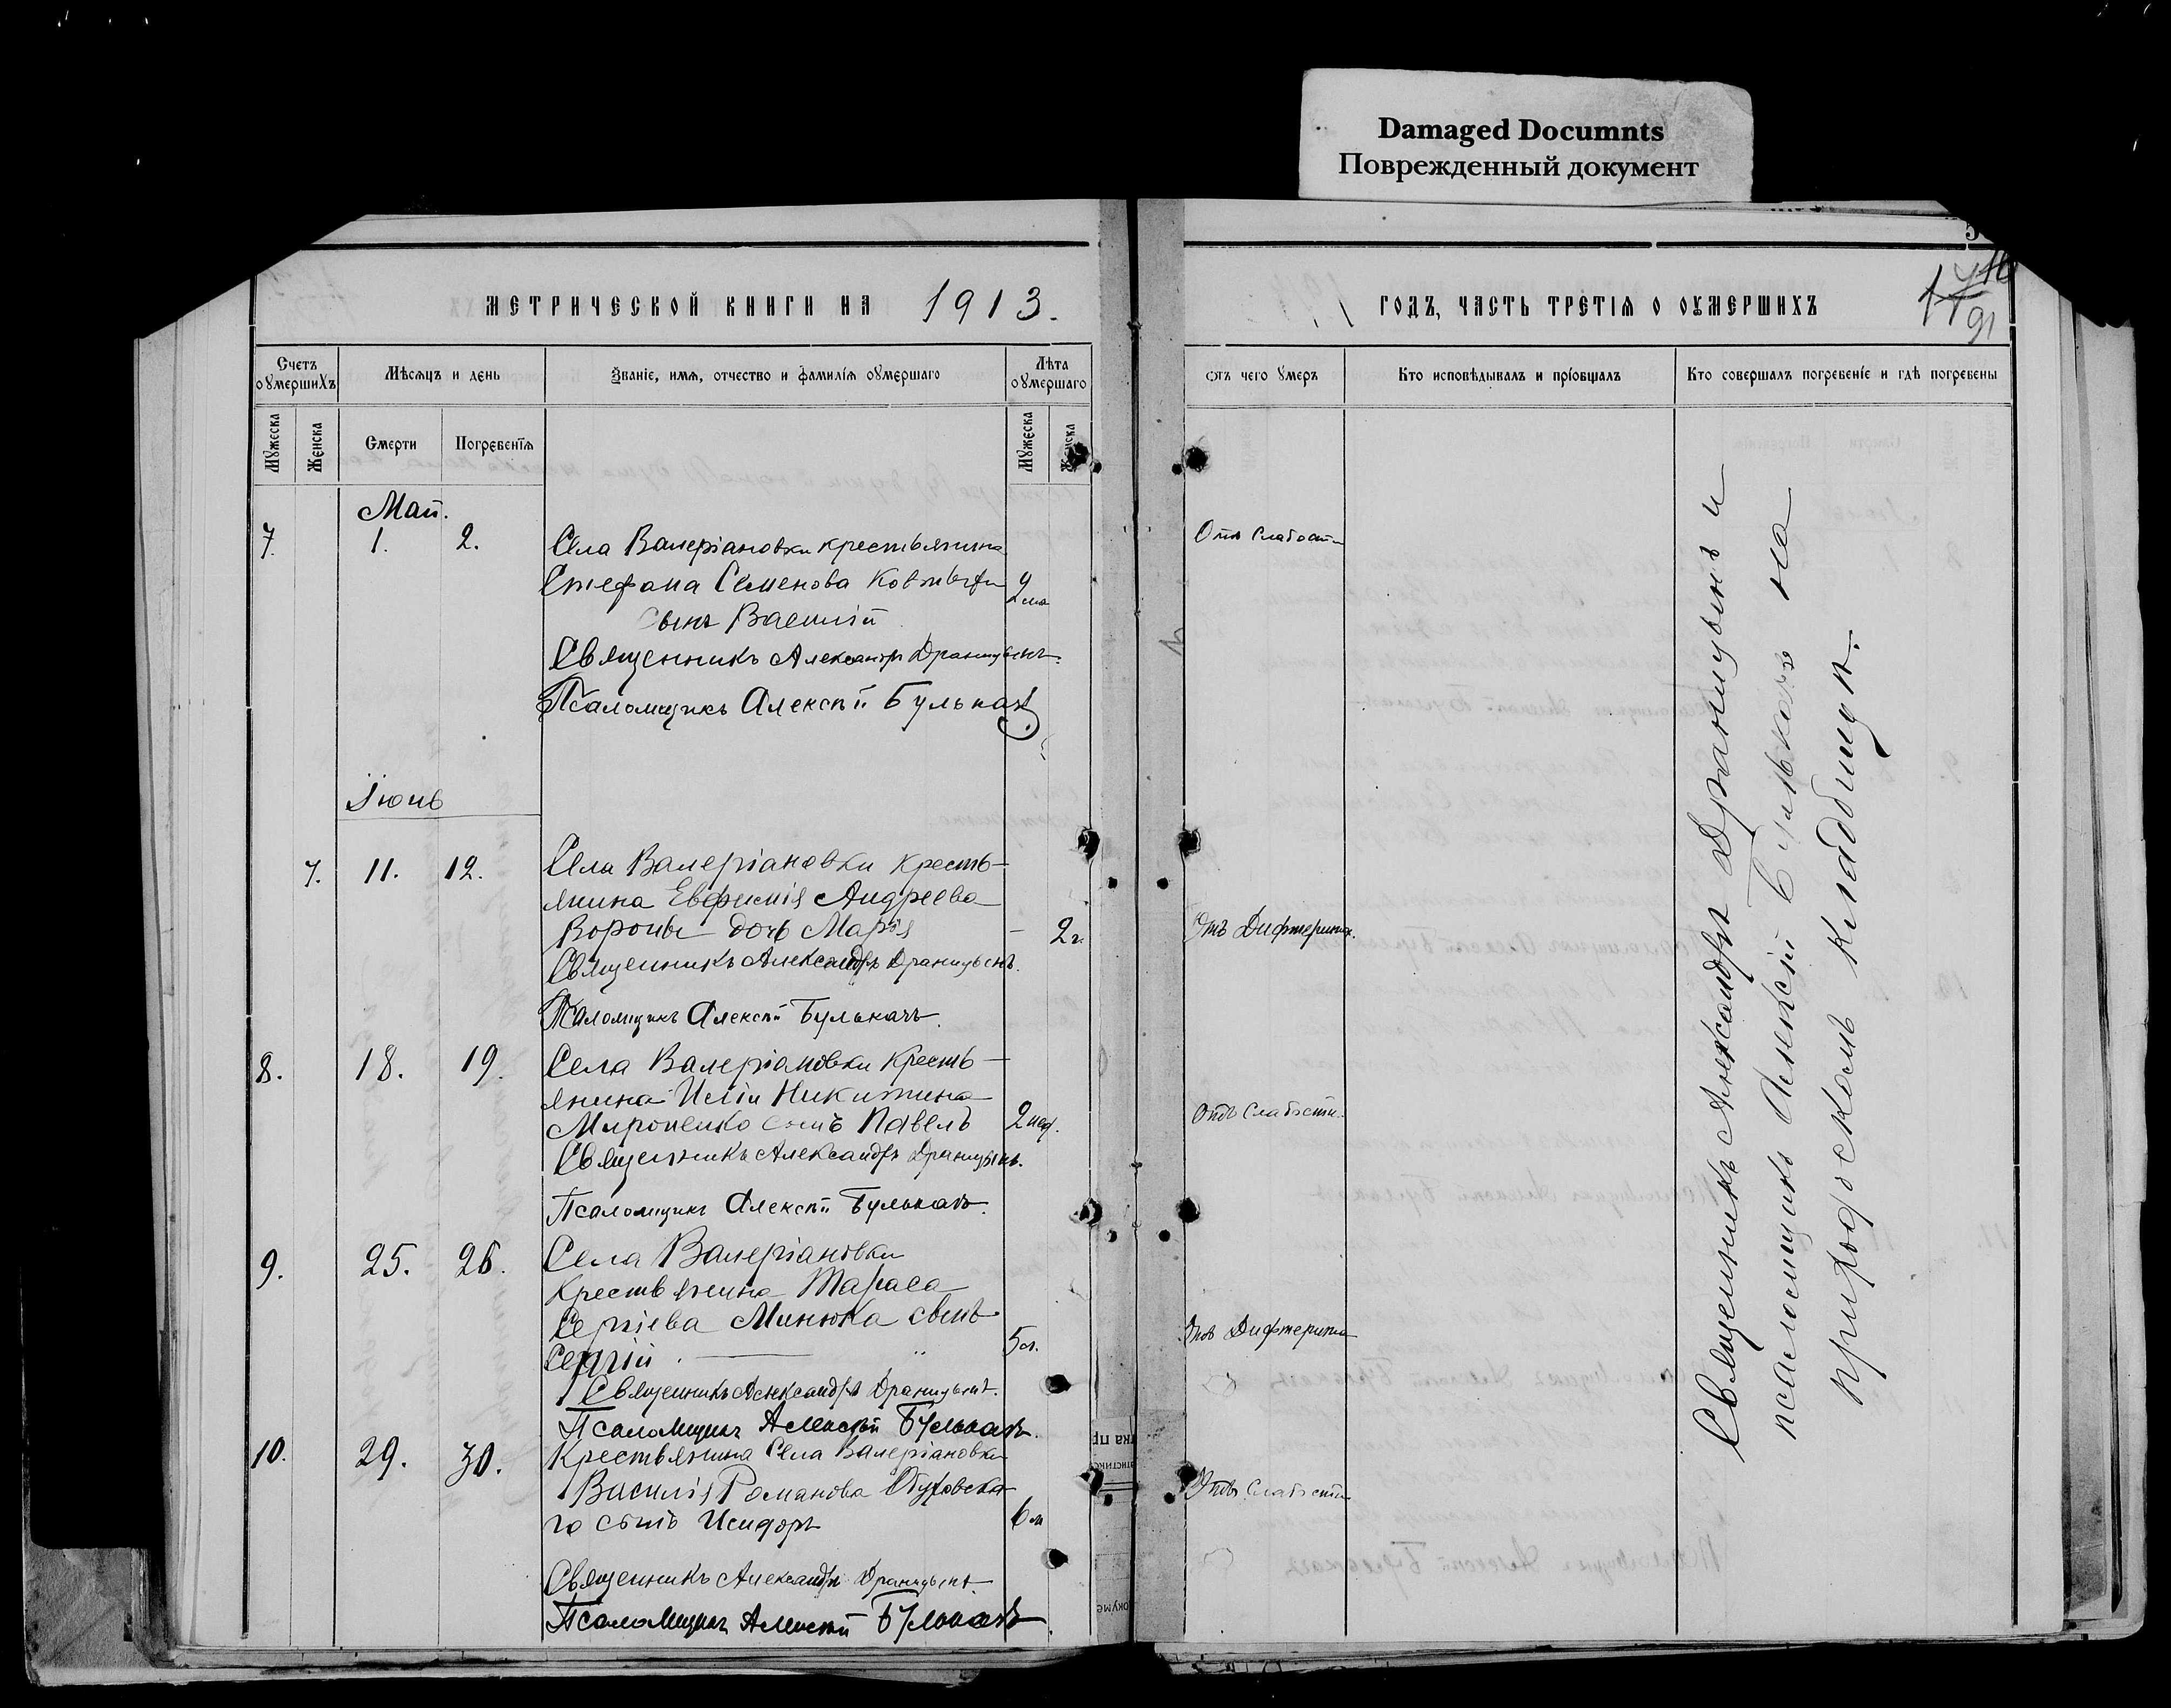 Damaged Documnts
Поврежденный документ
МЕТРИЧЕСКОЙ КНИГИ НА 1913.
ГОДЪ, ЧАСТЬ ТРЕТІЯ О ОУМЕРШИХЪ
91
Счетъ оумершихъ
Мѣсяцъ и день
Званіе, имя, отчество и фамилія оумершаго
Лѣта оумершаго
отъ чего умеръ
Кто исповѣдывалъ и пріобщалъ
Кто совершалъ погребеніе и гдѣ погребены
Мужеска
Женска
Смерти
Погребенїя
Мужеска
Женска
Май.
7. 1. 2. Села Валеріановки крестьянина
Отъ слабости
Стефана Семенова 2 м.
сынъ Василій
Священникъ Александръ Драницынъ.
Псаломщикъ Алексѣй Булькачъ
Іюнь
7. 11. 12. Села Валеріановки кресть-
янина Евфимія Андреева
Вороны дочь Марія – 2 г.
Отъ Дифтерита.
Священникъ Александръ Драницынъ.
Псаломщикъ Алексѣй Булькачъ.
8. 18. 19. Села Валеріановки кресть-
янина Иліи Никитина
Мироненко сынъ Павелъ 2 нед.
Отъ слабости.
Священникъ Александръ Драницынъ.
Псаломщикъ Алексѣй Булькачъ.
9. 25. 26. Села Валеріановки
крестьянина Тараса
Сергіева Минюка сынъ
Сергій. 5 л.
Отъ Дифтерита
Священникъ Александръ Драницынъ.
Псаломщикъ Алексѣй Булькачъ.
10. 29. 30. Крестьянина Села Валеріановки
Василія Романова Обуховска-
Отъ слабости
го сынъ Исидоръ 6 м
Священникъ Александръ Драницынъ.
Псаломщикъ Алексѣй Булькачъ.
Священникъ Александръ Драницынъ и
псаломщикъ Алексѣй Булькачъ на
приходскомъ кладбищѣ.